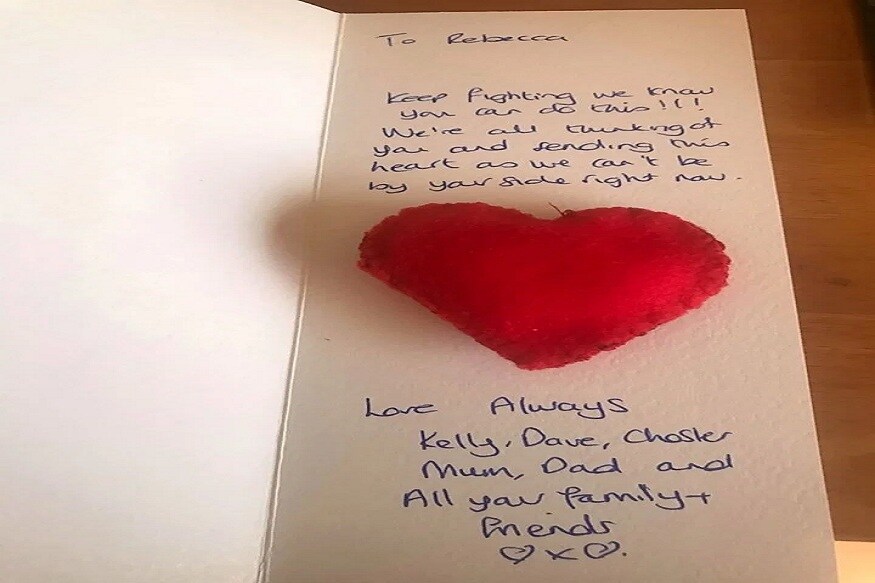 To Rebecca
Keep fighting we know
you can do this!!!
We're all thinking of
you and sending this
heart as we can't be
by your side right now.
Love Always
Kelly, Dave, Chester
Mum, Dad and
All your family +
friends
♡ x ♡.